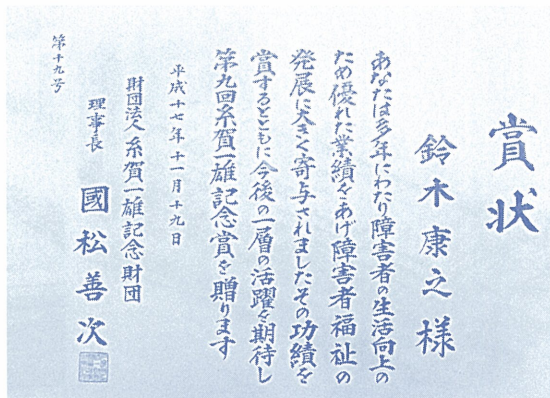 賞状
鈴木康之様
あなたは多年にわたり障害者の生活向上の
ため優れた業績をあげ障害者福祉の
発展に大きく寄与されましたその功績を
賞するとともに今後の一層の活躍を期待し
第九回糸賀一雄記念賞を贈ります
平成十七年十一月十九日
財団法人糸賀一雄記念財団
理事長 國松善次
第十九号